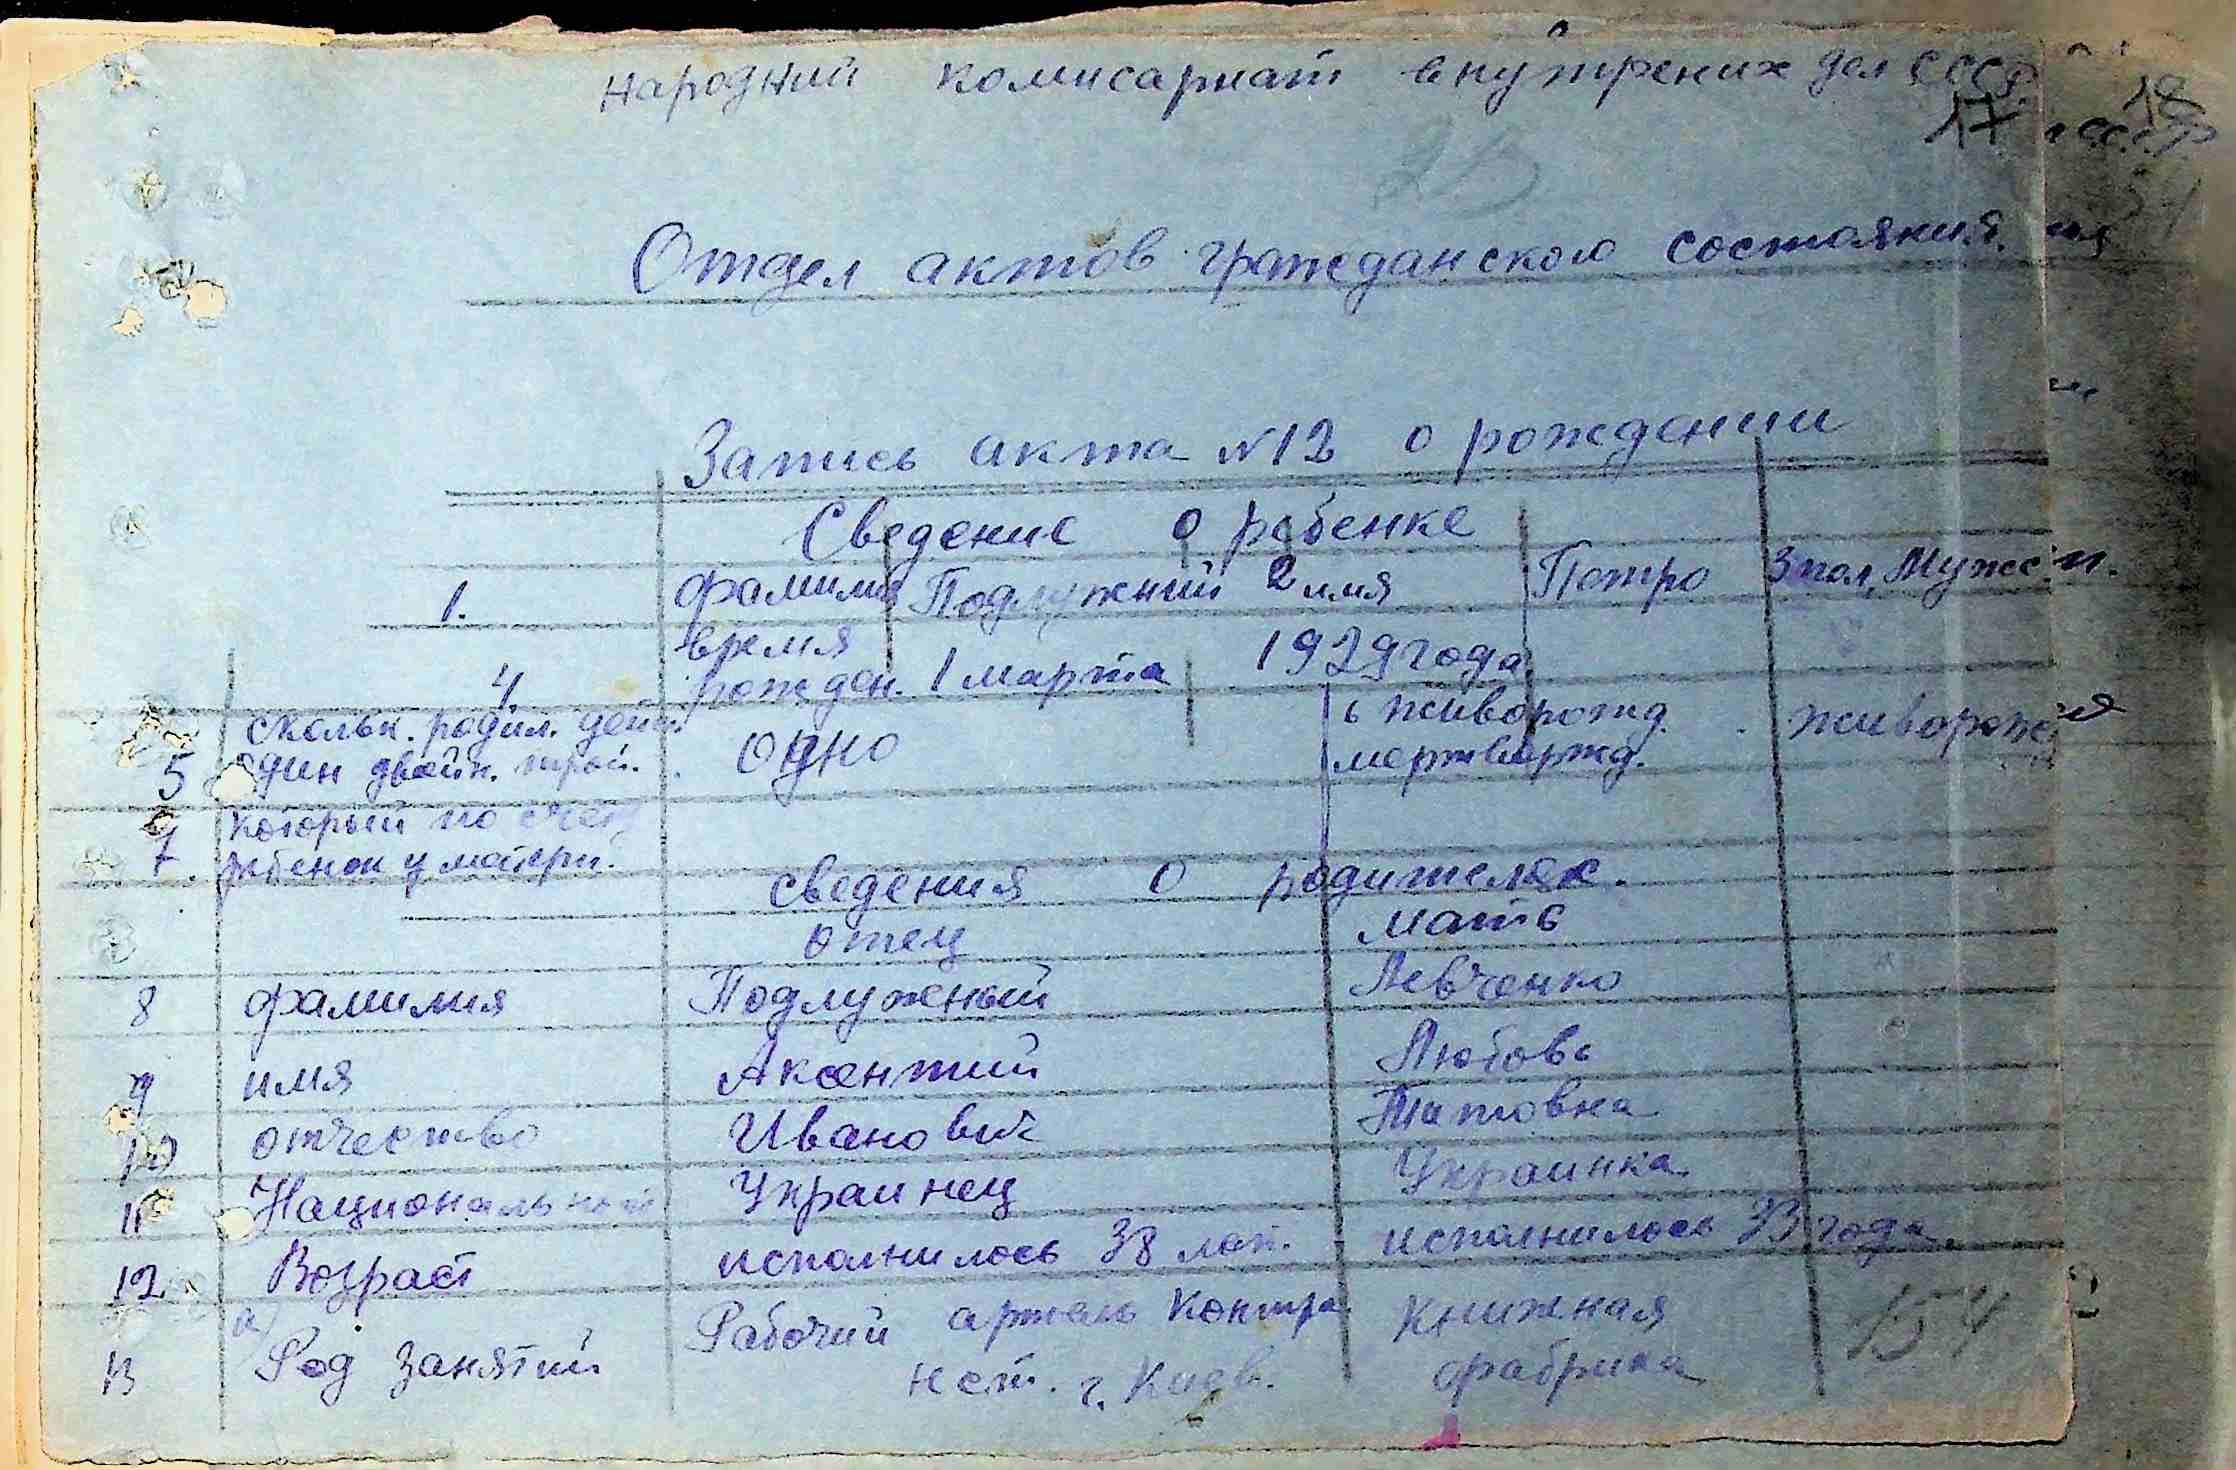 Народний комисариат внутрених дел СССР
17
18
СССР
Отдел актов гражданского состояния.
Запись акта N12 о рождении
Сведение о ребенке
1. фамилия Подлужний 2 имя Петро 3 пол, Мужс.
4 время рожден. 1 марта 1929 года
5 скольк. родил. дет. один двойн. трой. одно 6 живорожд. мертворжд. живорож
7. который по счету ребенок у матери.
сведения о родителях.
отец мать
8 фамилия Подлуженый Левченко
9 имя Аксентий Любовь
10 отчество Иванович Титовна
11 Национальност Украинец Украинка
12 Возраст исполнилось 38 лет. исполнилось 33 года
а)
13 Род занятий Рабочий артель Контра Книжная
нст. г. Киев. фабрика
154